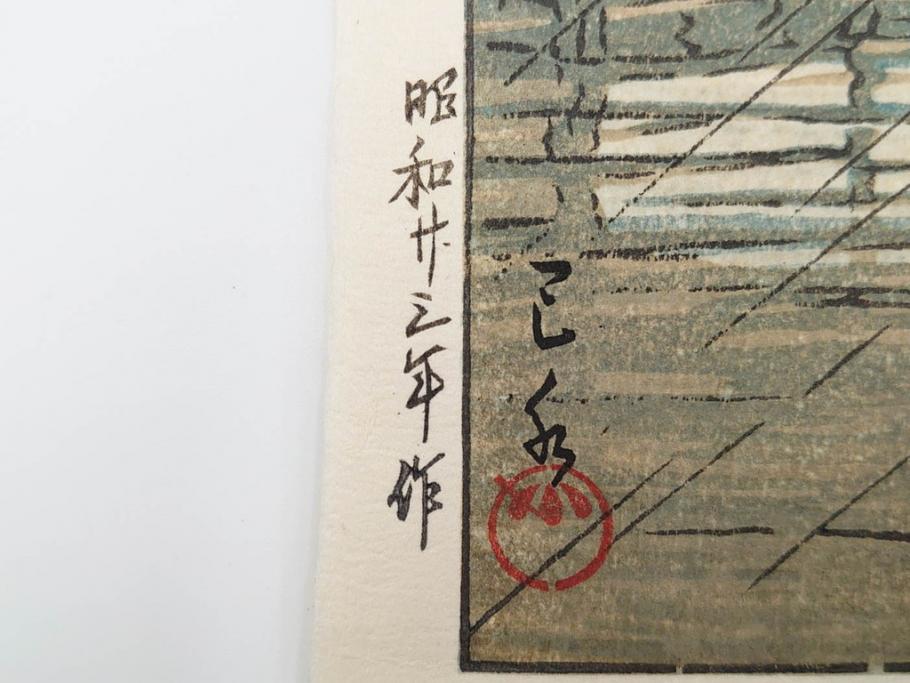 巴水
昭和廿三年作